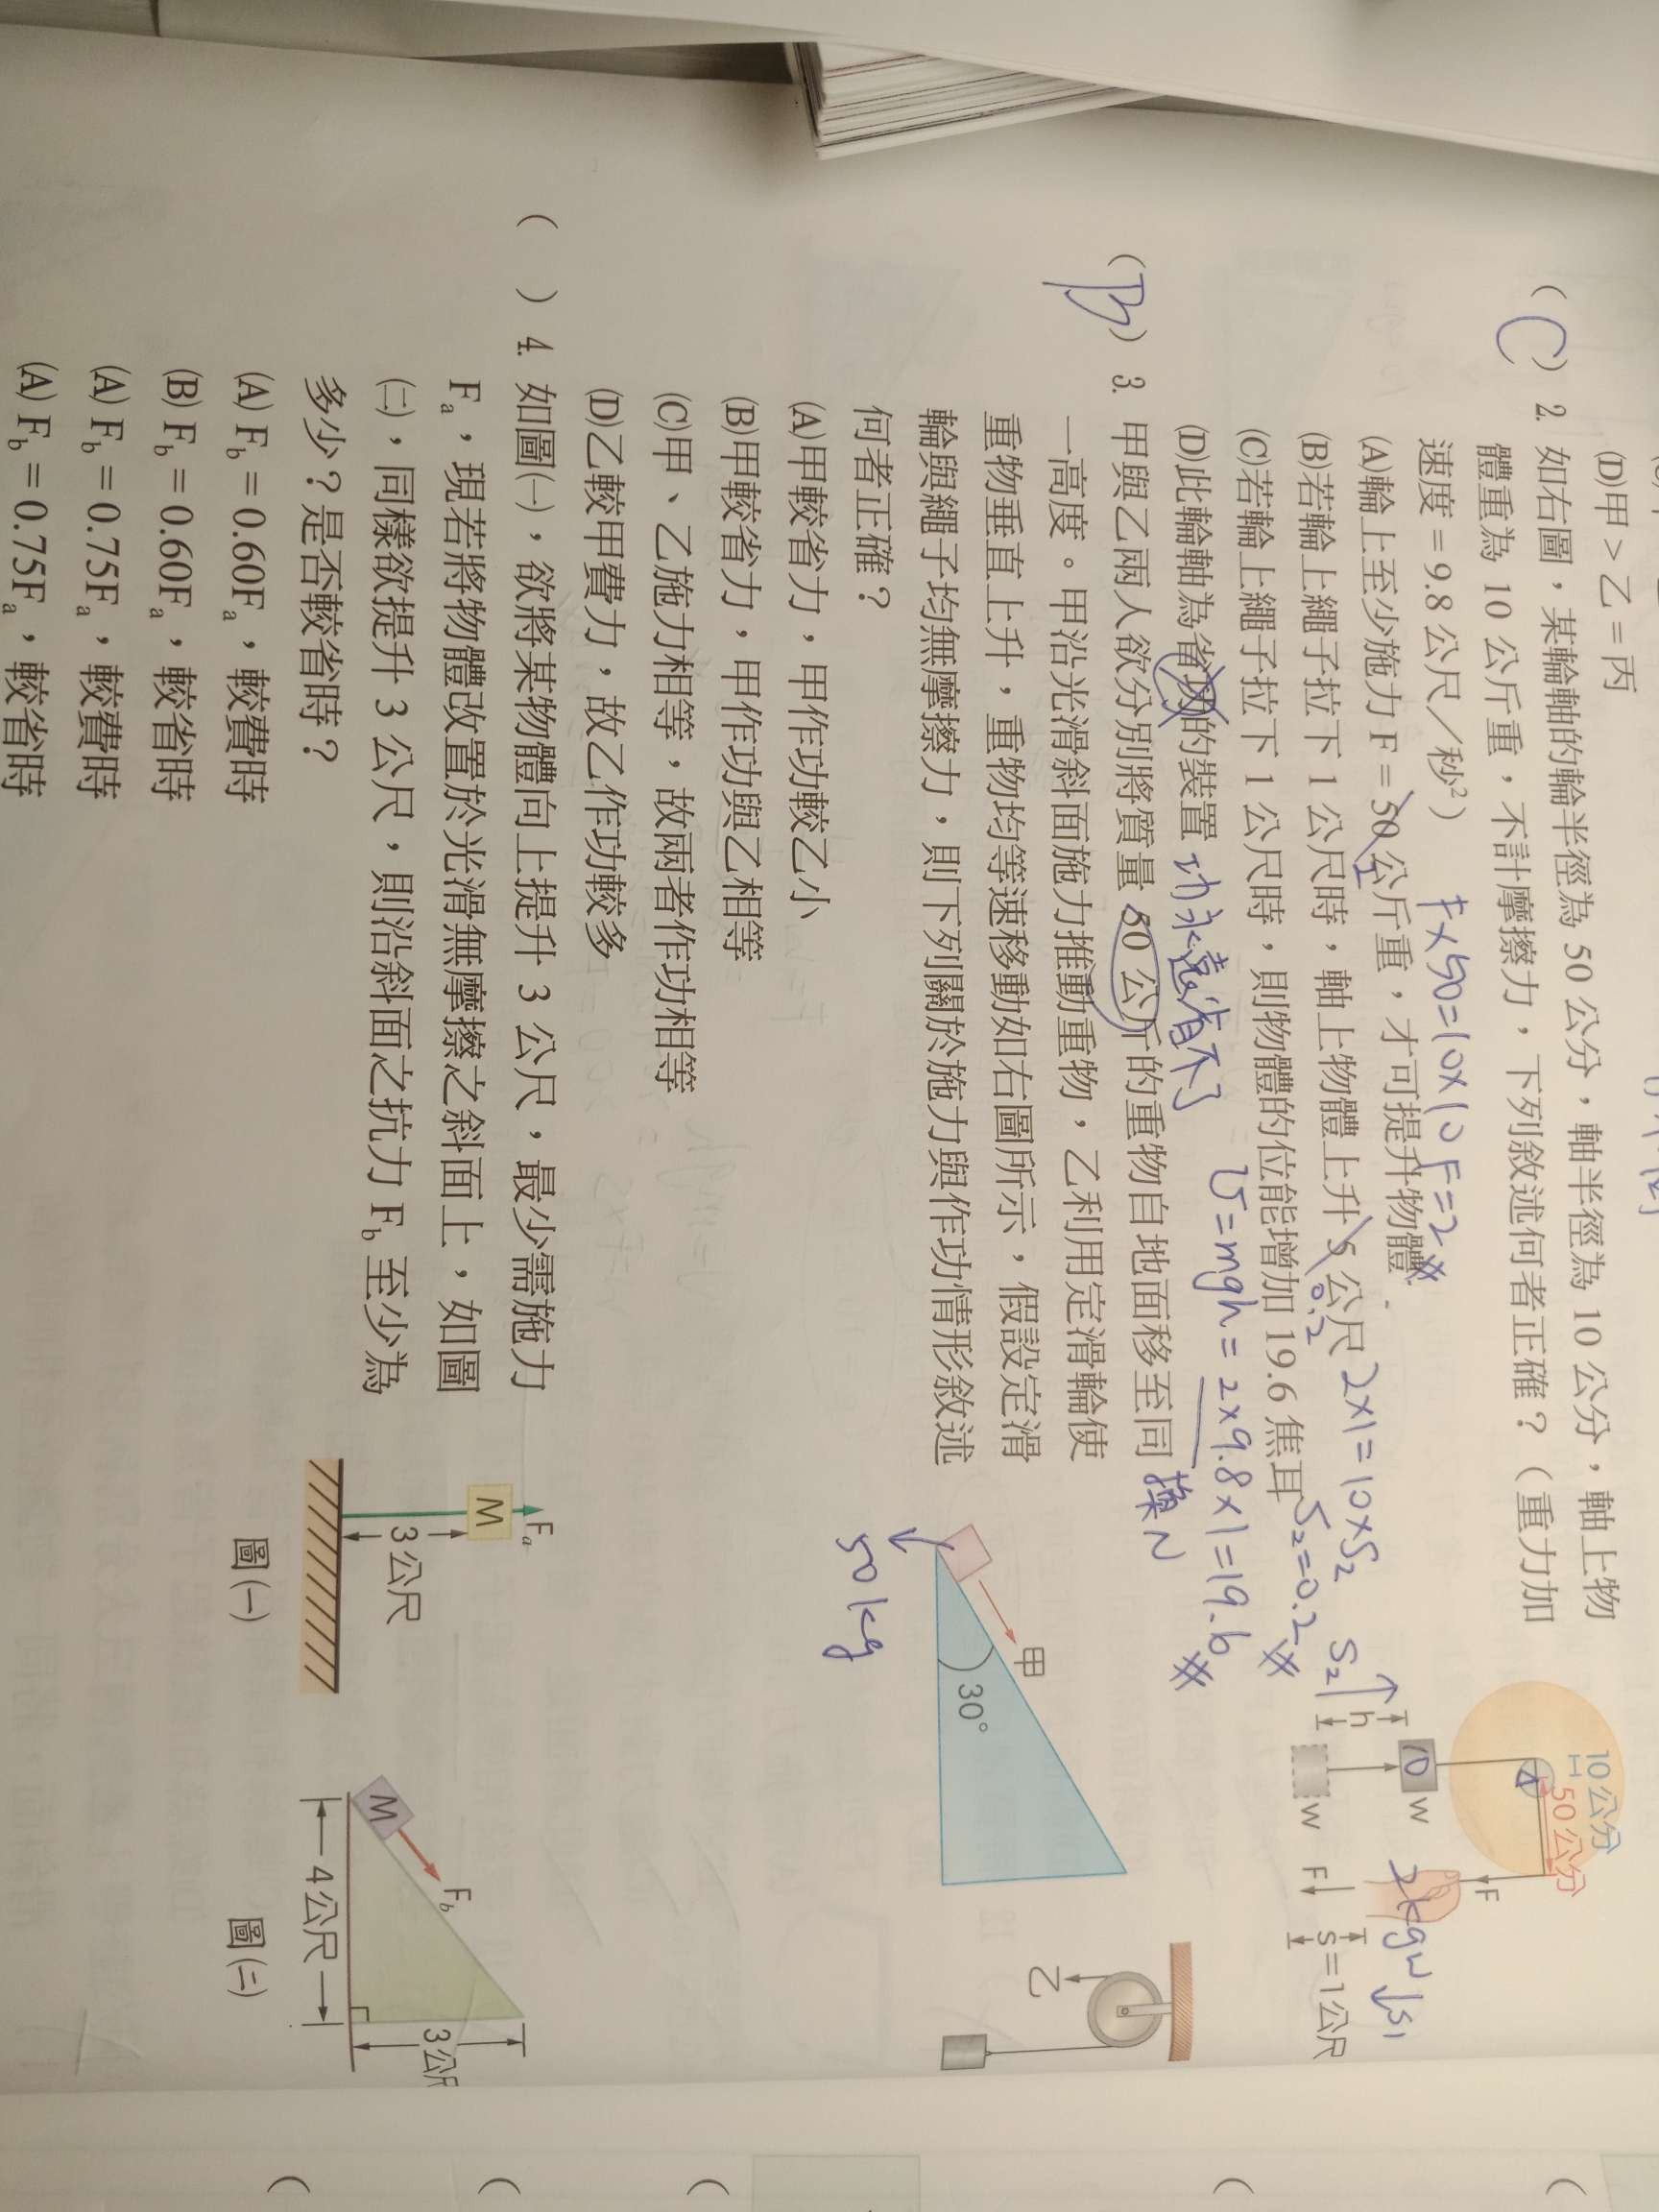 (D)甲＞乙＝丙
( C ) 2. 如右圖，某輪軸的輪半徑為 50 公分，軸半徑為 10 公分，軸上物
體重為 10 公斤重，不計摩擦力，下列敘述何者正確？（重力加
速度＝9.8 公尺／秒²）
F×50=10×10 F=2
(A)輪上至少施力 F＝50 公斤重，才可提升物體
2
(B)若輪上繩子拉下 1 公尺時，軸上物體上升 5 公尺
0.2
2×1=10×S₂
S₂=0.2
(C)若輪上繩子拉下 1 公尺時，則物體的位能增加 19.6 焦耳
U=mgh=2×9.8×1=19.6
換N
(D)此輪軸為省功的裝置
功永遠省不了
10公分
50公分
F
10
W
h
S₂
W
F
2kgw
S₁
S＝1公尺
( B ) 3. 甲與乙兩人欲分別將質量 50 公斤的重物自地面移至同
一高度。甲沿光滑斜面施力推動重物，乙利用定滑輪使
重物垂直上升，重物均等速移動如右圖所示，假設定滑
輪與繩子均無摩擦力，則下列關於施力與作功情形敘述
何者正確？
(A)甲較省力，甲作功較乙小
(B)甲較省力，甲作功與乙相等
(C)甲、乙施力相等，故兩者作功相等
(D)乙較甲費力，故乙作功較多
甲
30°
50kg
乙
( ) 4. 如圖㈠，欲將某物體向上提升 3 公尺，最少需施力
Fa，現若將物體改置於光滑無摩擦之斜面上，如圖
㈡，同樣欲提升 3 公尺，則沿斜面之抗力 Fb 至少為
多少？是否較省時？
(A) Fb＝0.60Fa，較費時
(B) Fb＝0.60Fa，較省時
(A) Fb＝0.75Fa，較費時
(A) Fb＝0.75Fa，較省時
Fa
M
3公尺
圖㈠
M
Fb
4公尺
3公尺
圖㈡